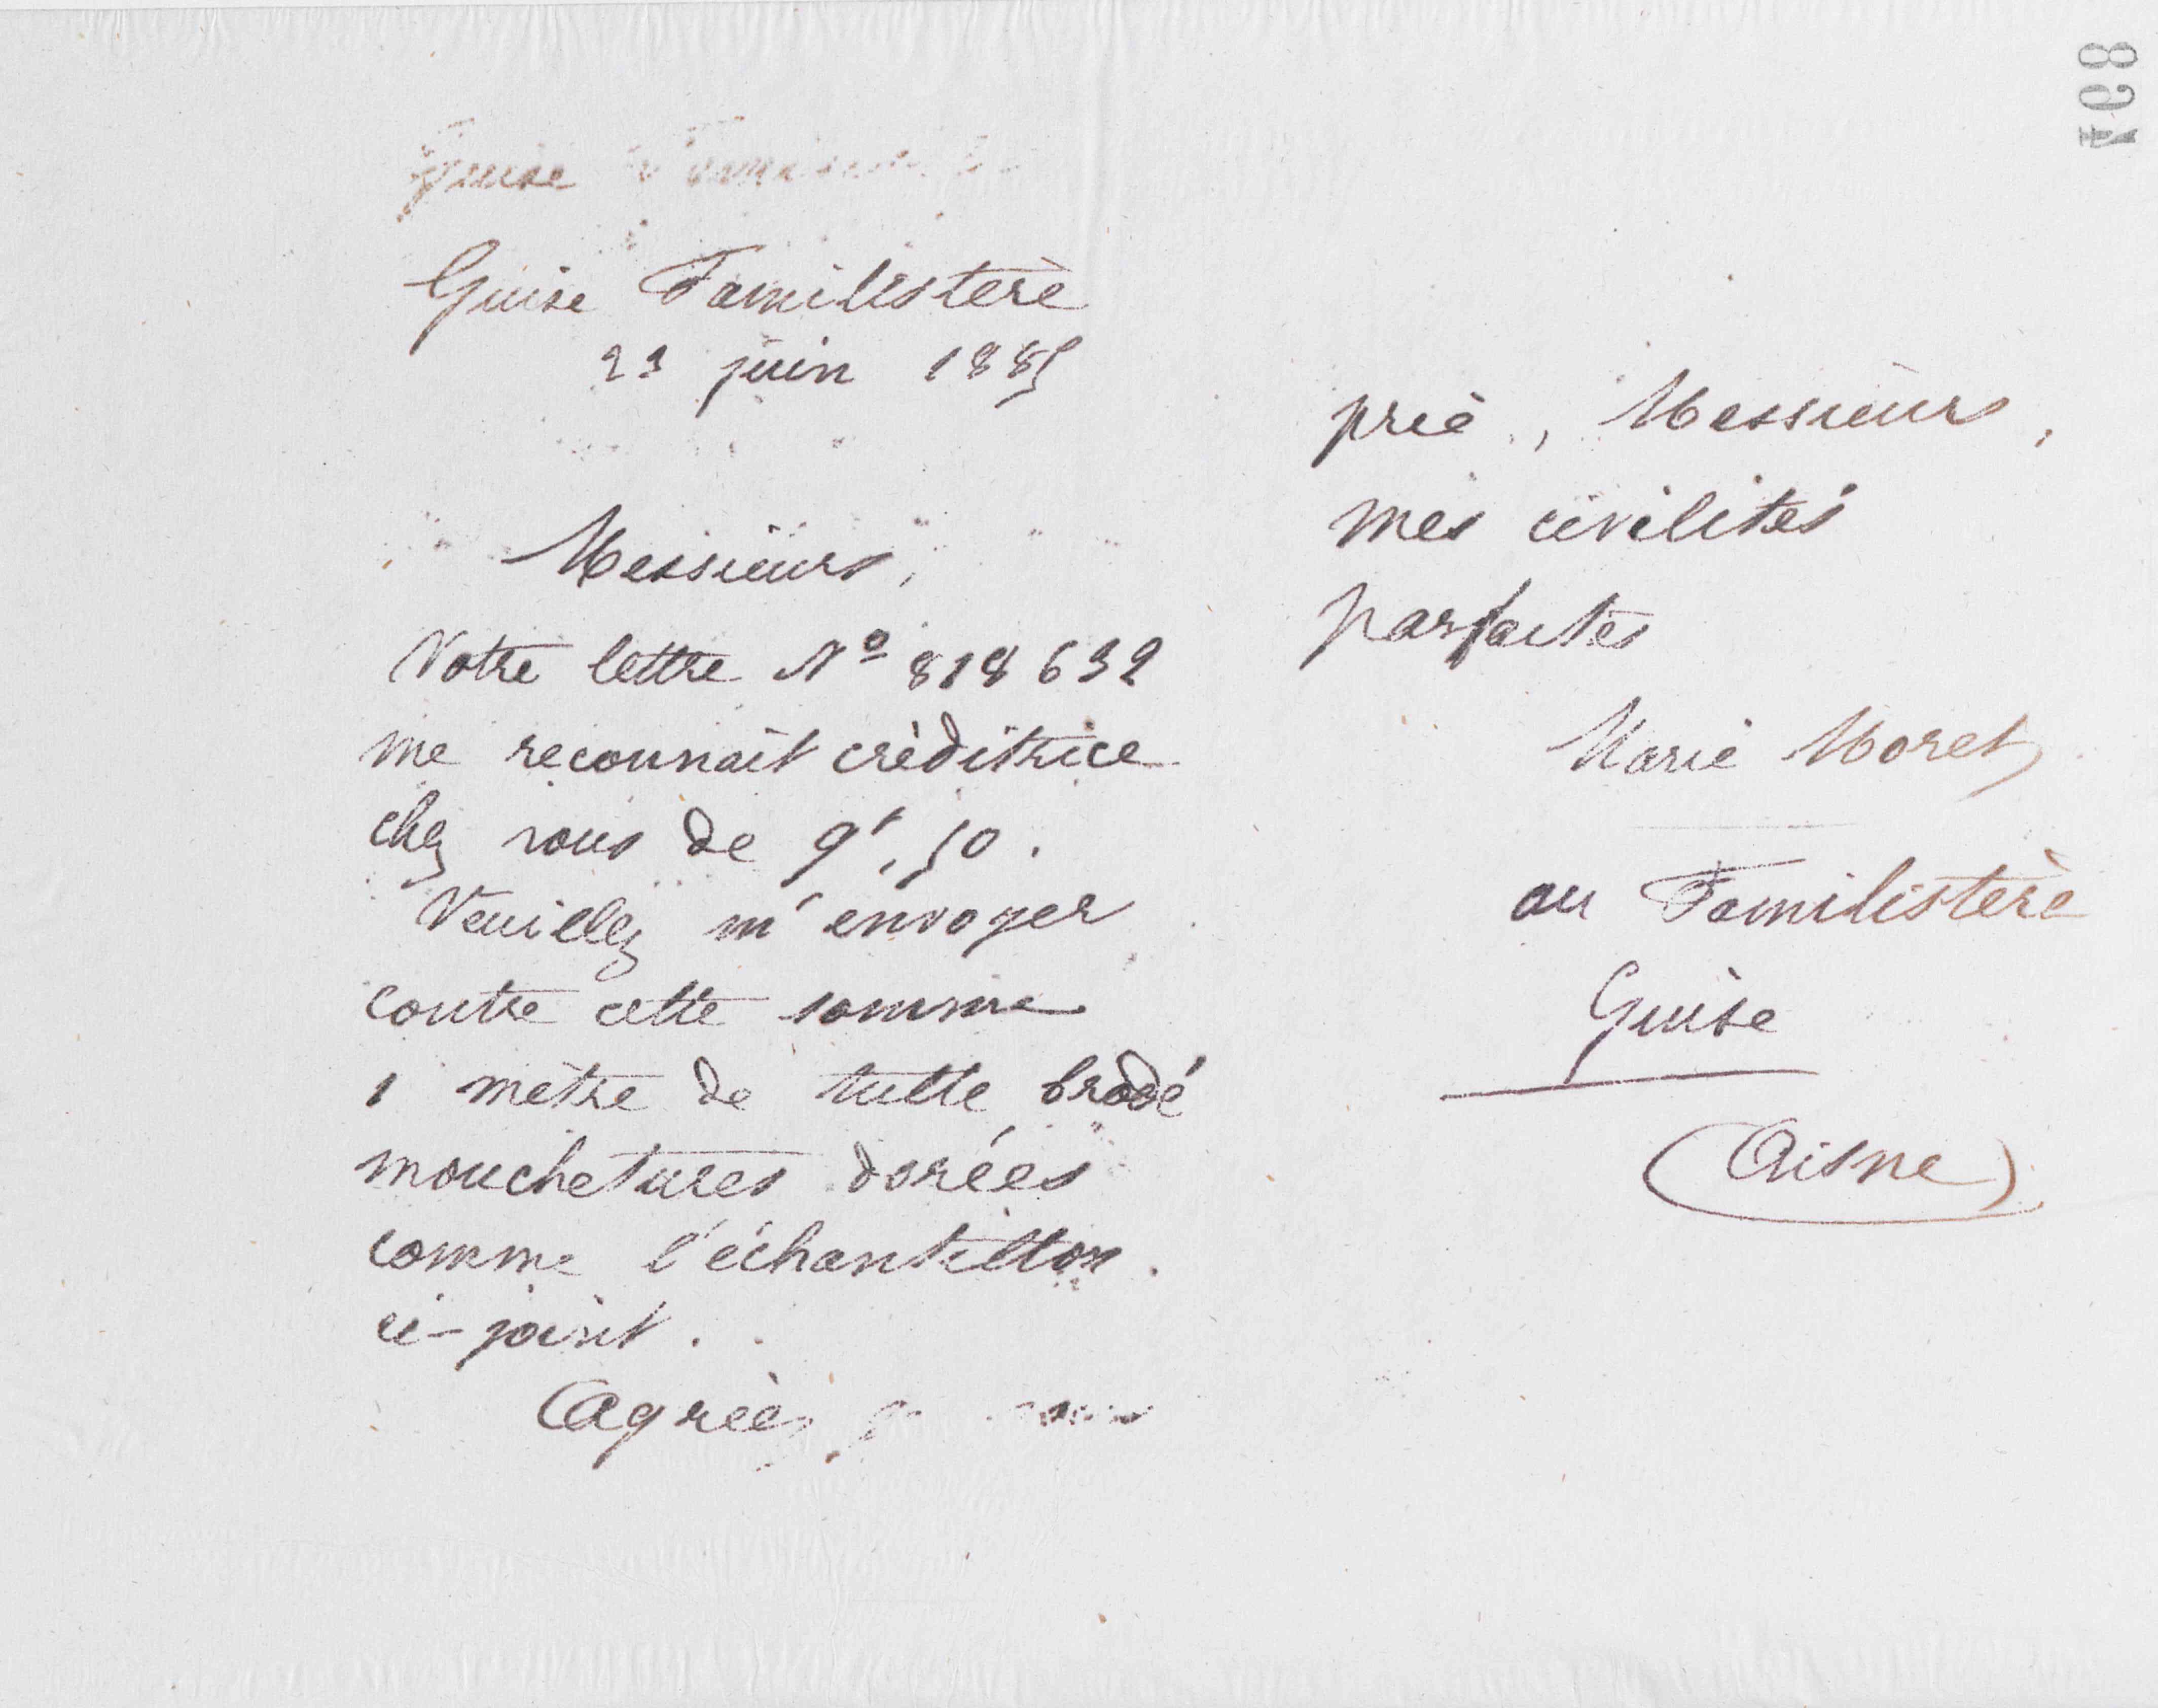 Guise
Guise Familistère
23 juin 1885
Messieurs,
Votre lettre Nº 818632
me reconnaît créditrice
chez vous de 9f,50.
Veuillez m'envoyer
contre cette somme
1 mètre de tulle brodé
mouchetures dorées
comme l'échantillon
ci-joint.
Agréez
prie, Messieurs,
mes civilités
parfaites
Marie Moret
au Familistère
Guise
(Aisne)
468